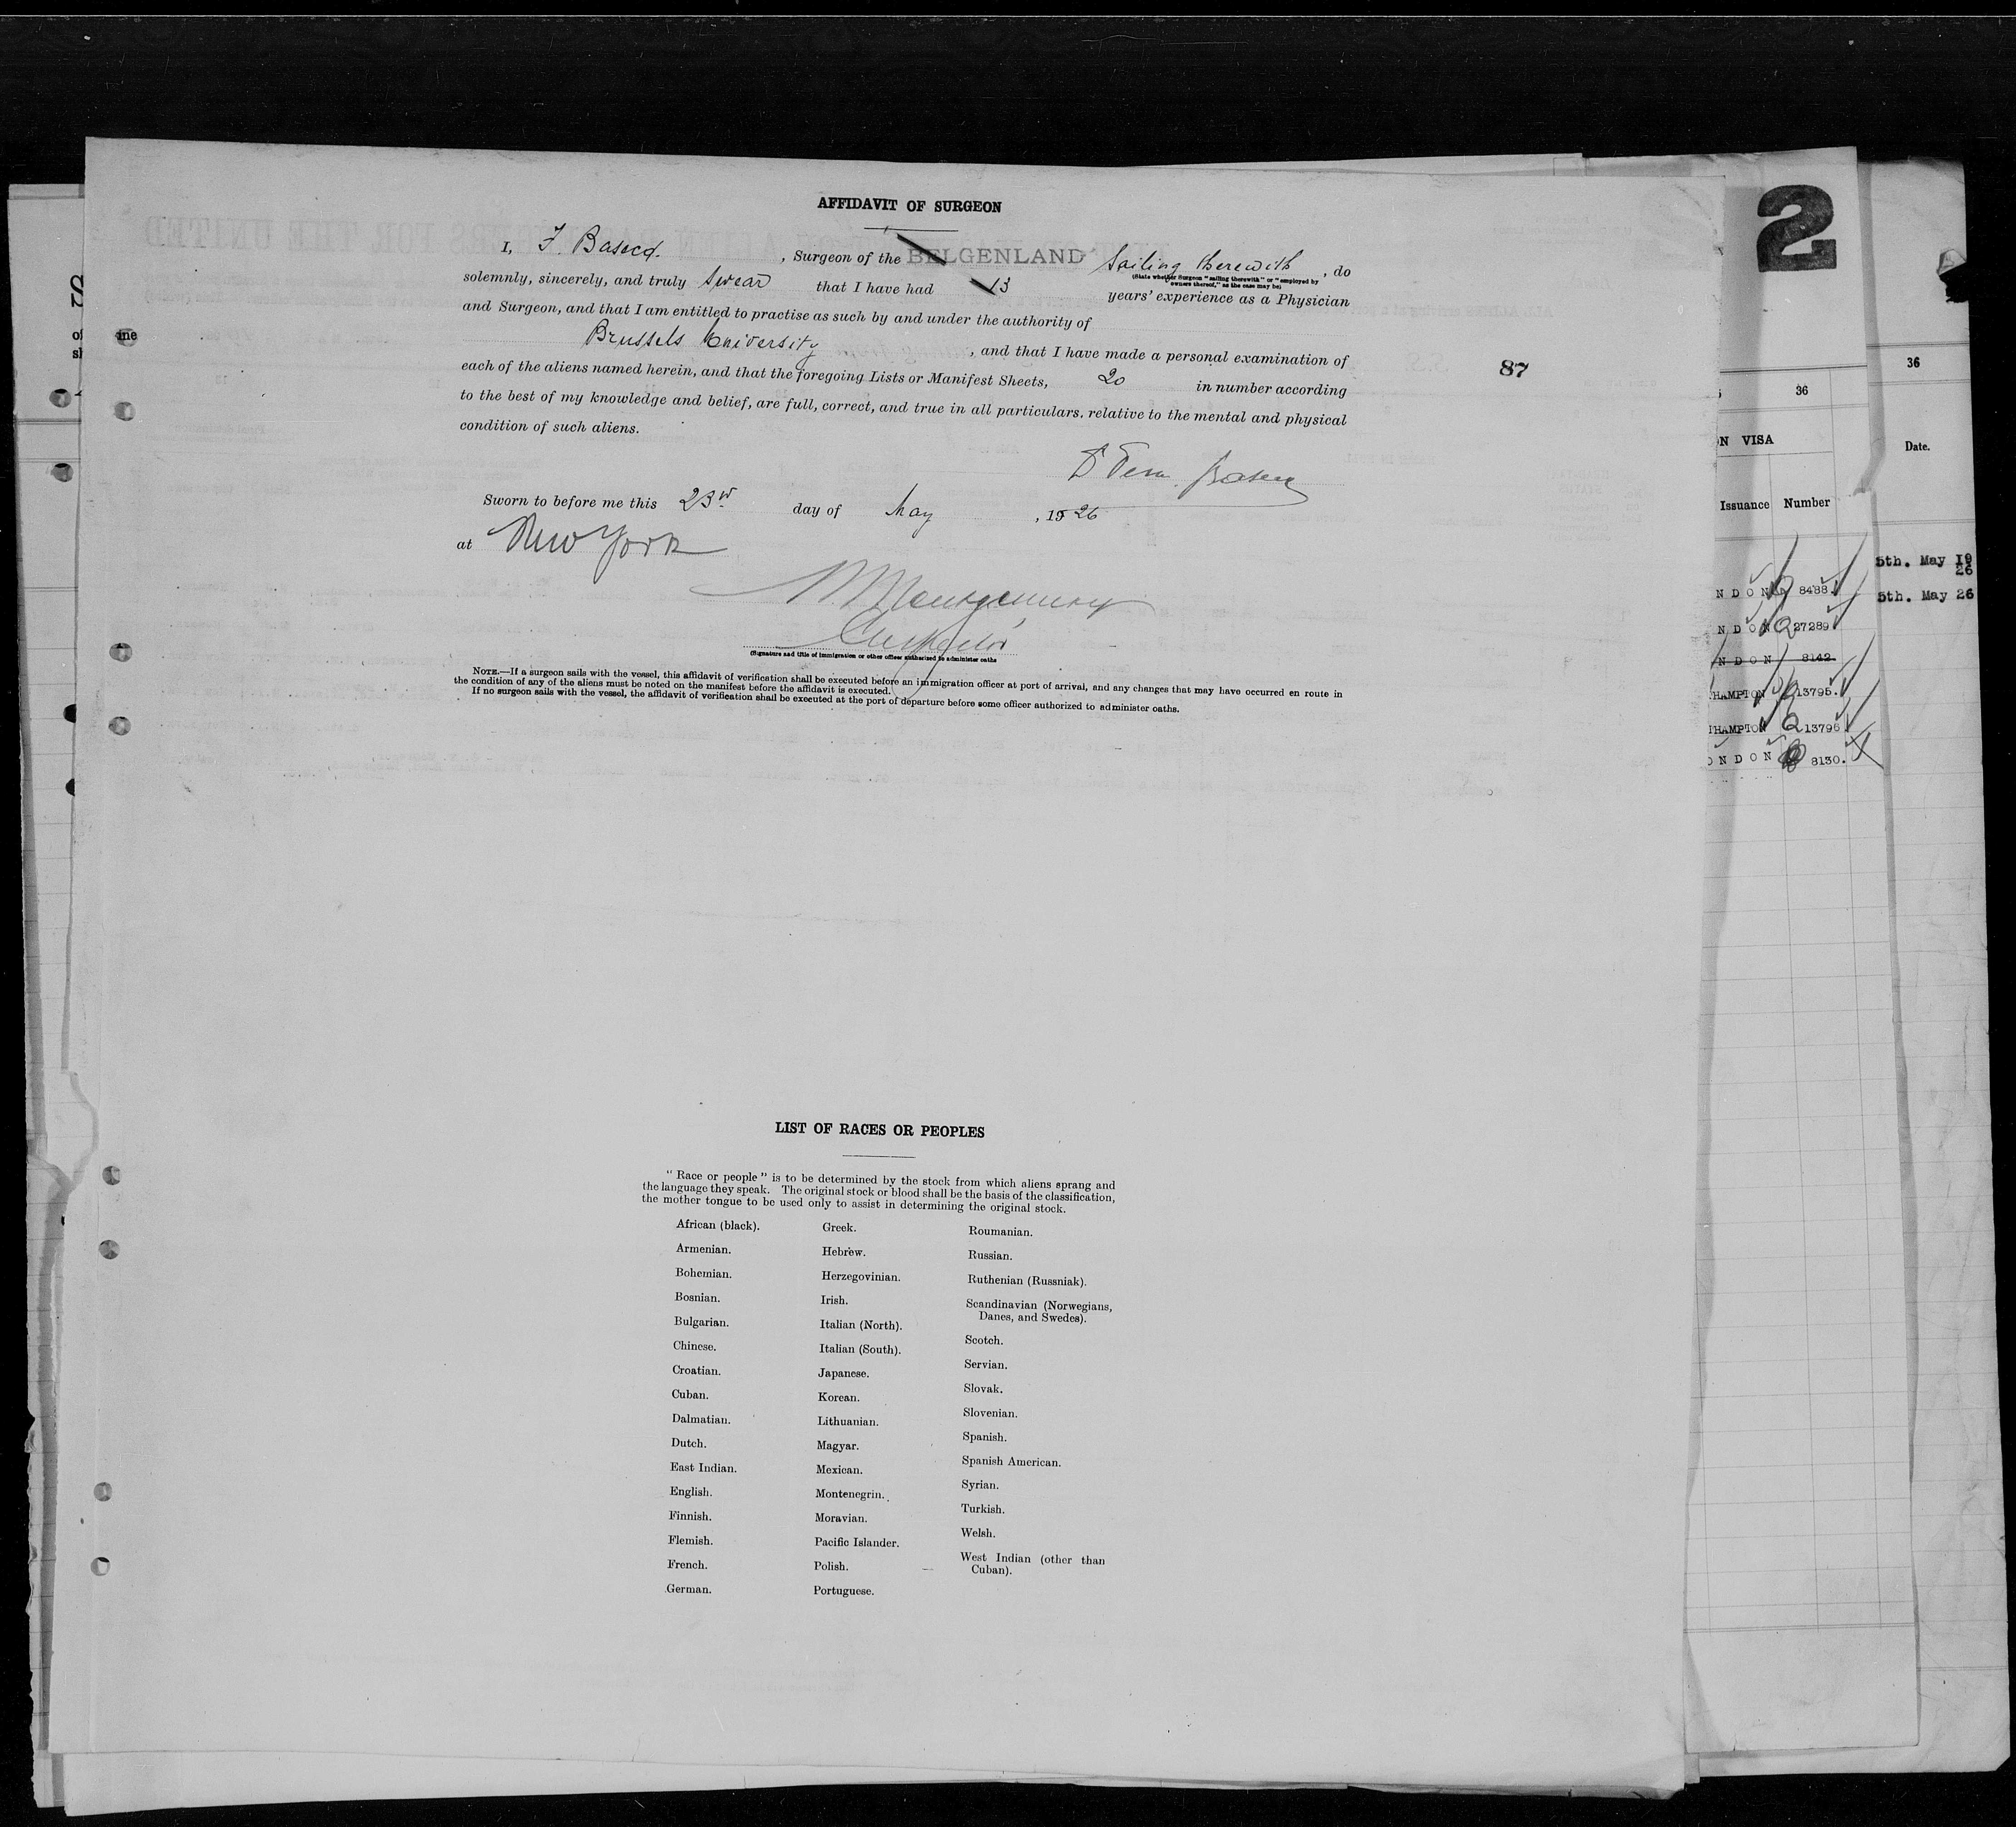 AFFIDAVIT OF SURGEON
I, F. Baseed. , Surgeon of the BELGENLAND Sailing therewith , do
(State whether Surgeon "sailing therewith" or "employed by
owners thereof," as the case may be)
solemnly, sincerely, and truly Swear that I have had 13 years' experience as a Physician
and Surgeon, and that I am entitled to practise as such by and under the authority of
Brussels University , and that I have made a personal examination of
each of the aliens named herein, and that the foregoing Lists or Manifest Sheets, 20 in number according
to the best of my knowledge and belief, are full, correct, and true in all particulars. relative to the mental and physical
condition of such aliens.
Sworn to before me this 23rd day of May , 1926
at New York
Montgomery
Inspector
(Signature and title of immigration or other officer authorized to administer oaths
NOTE.—If a surgeon sails with the vessel, this affidavit of verification shall be executed before an immigration officer at port of arrival, and any changes that may have occurred en route in
the condition of any of the aliens must be noted on the manifest before the affidavit is executed.
If no surgeon sails with the vessel, the affidavit of verification shall be executed at the port of departure before some officer authorized to administer oaths.
87
LIST OF RACES OR PEOPLES
"Race or people" is to be determined by the stock from which aliens sprang and
the language they speak. The original stock or blood shall be the basis of the classification,
the mother tongue to be used only to assist in determining the original stock.
African (black).
Armenian.
Bohemian.
Bosnian.
Bulgarian.
Chinese.
Croatian.
Cuban.
Dalmatian.
Dutch.
East Indian.
English.
Finnish.
Flemish.
French.
German.
Greek.
Hebrew.
Herzegovinian.
Irish.
Italian (North).
Italian (South).
Japanese.
Korean.
Lithuanian.
Magyar.
Mexican.
Montenegrin.
Moravian.
Pacific Islander.
Polish.
Portuguese.
Roumanian.
Russian.
Ruthenian (Russniak).
Scandinavian (Norwegians,
Danes, and Swedes).
Scotch.
Servian.
Slovak.
Slovenian.
Spanish.
Spanish American.
Syrian.
Turkish.
Welsh.
West Indian (other than
Cuban).
2
36
N VISA
Issuance Number
NDON 8488.
NDON 27289
NDON 8142
HAMPTON 13795.
HAMPTON 13796
ONDON 8130.
36
Date.
5th. May 19
26
5th. May 26